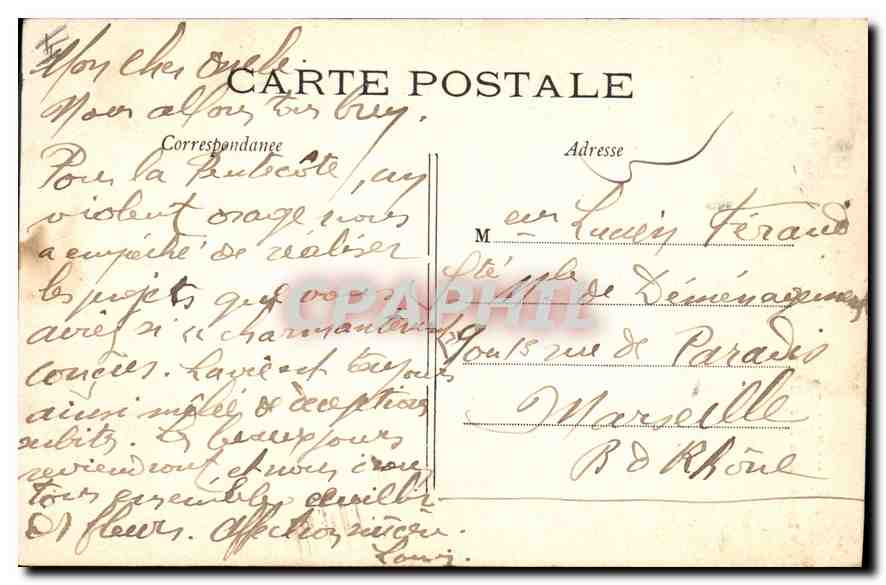 Mon cher oncle.
CARTE POSTALE
Nous allons tous bien.
Correspondance
Pour la Pentecôte, un
violent orage nous
a empêché de réaliser
les projets que vous
aviez si "charmantement"
conçus. La vie est toujours
ainsi mêlée de déceptions
subites. Les beaux jours
reviendront et nous irons
tous ensemble cueillir
des fleurs. Affection sincère.
Louis.
Adresse
Meur Lucien Féraud
Sté Mle de Déménagements
rue de Paradis
Marseille
B d Rhône
CPAPHIL